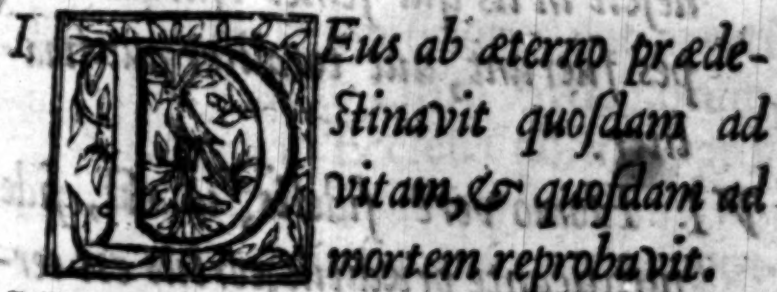 I DEus ab æterno præde-
ſtinavit quoſdam ad
vitam, & quoſdam ad
mortem reprobavit.